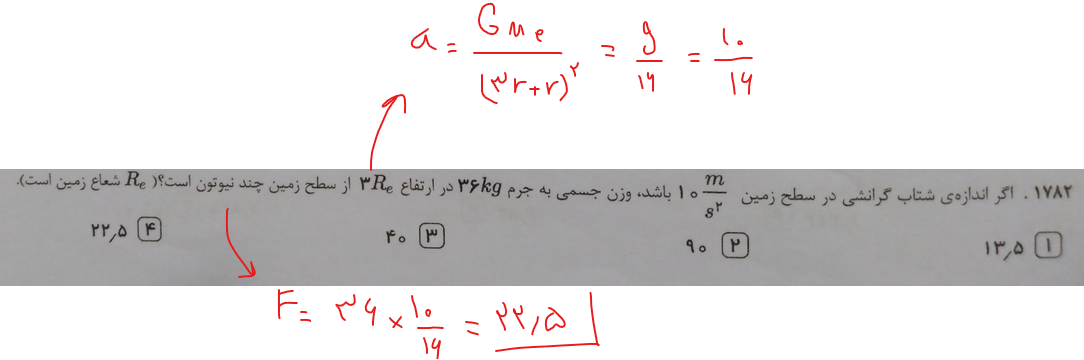 a = GMe / (۳r+r)^۲ = g / ۱۶ = ۱۰ / ۱۶
۱۷۸۲ . اگر اندازه‌ی شتاب گرانشی در سطح زمین ۱۰ m/s^۲ باشد، وزن جسمی به جرم ۳۶kg در ارتفاع ۳Re از سطح زمین چند نیوتون است؟( Re شعاع زمین است).
۱ ۱۳٫۵ ۲ ۹۰ ۳ ۴۰ ۴ ۲۲٫۵
F = ۳۶ × ۱۰ / ۱۶ = ۲۲٫۵